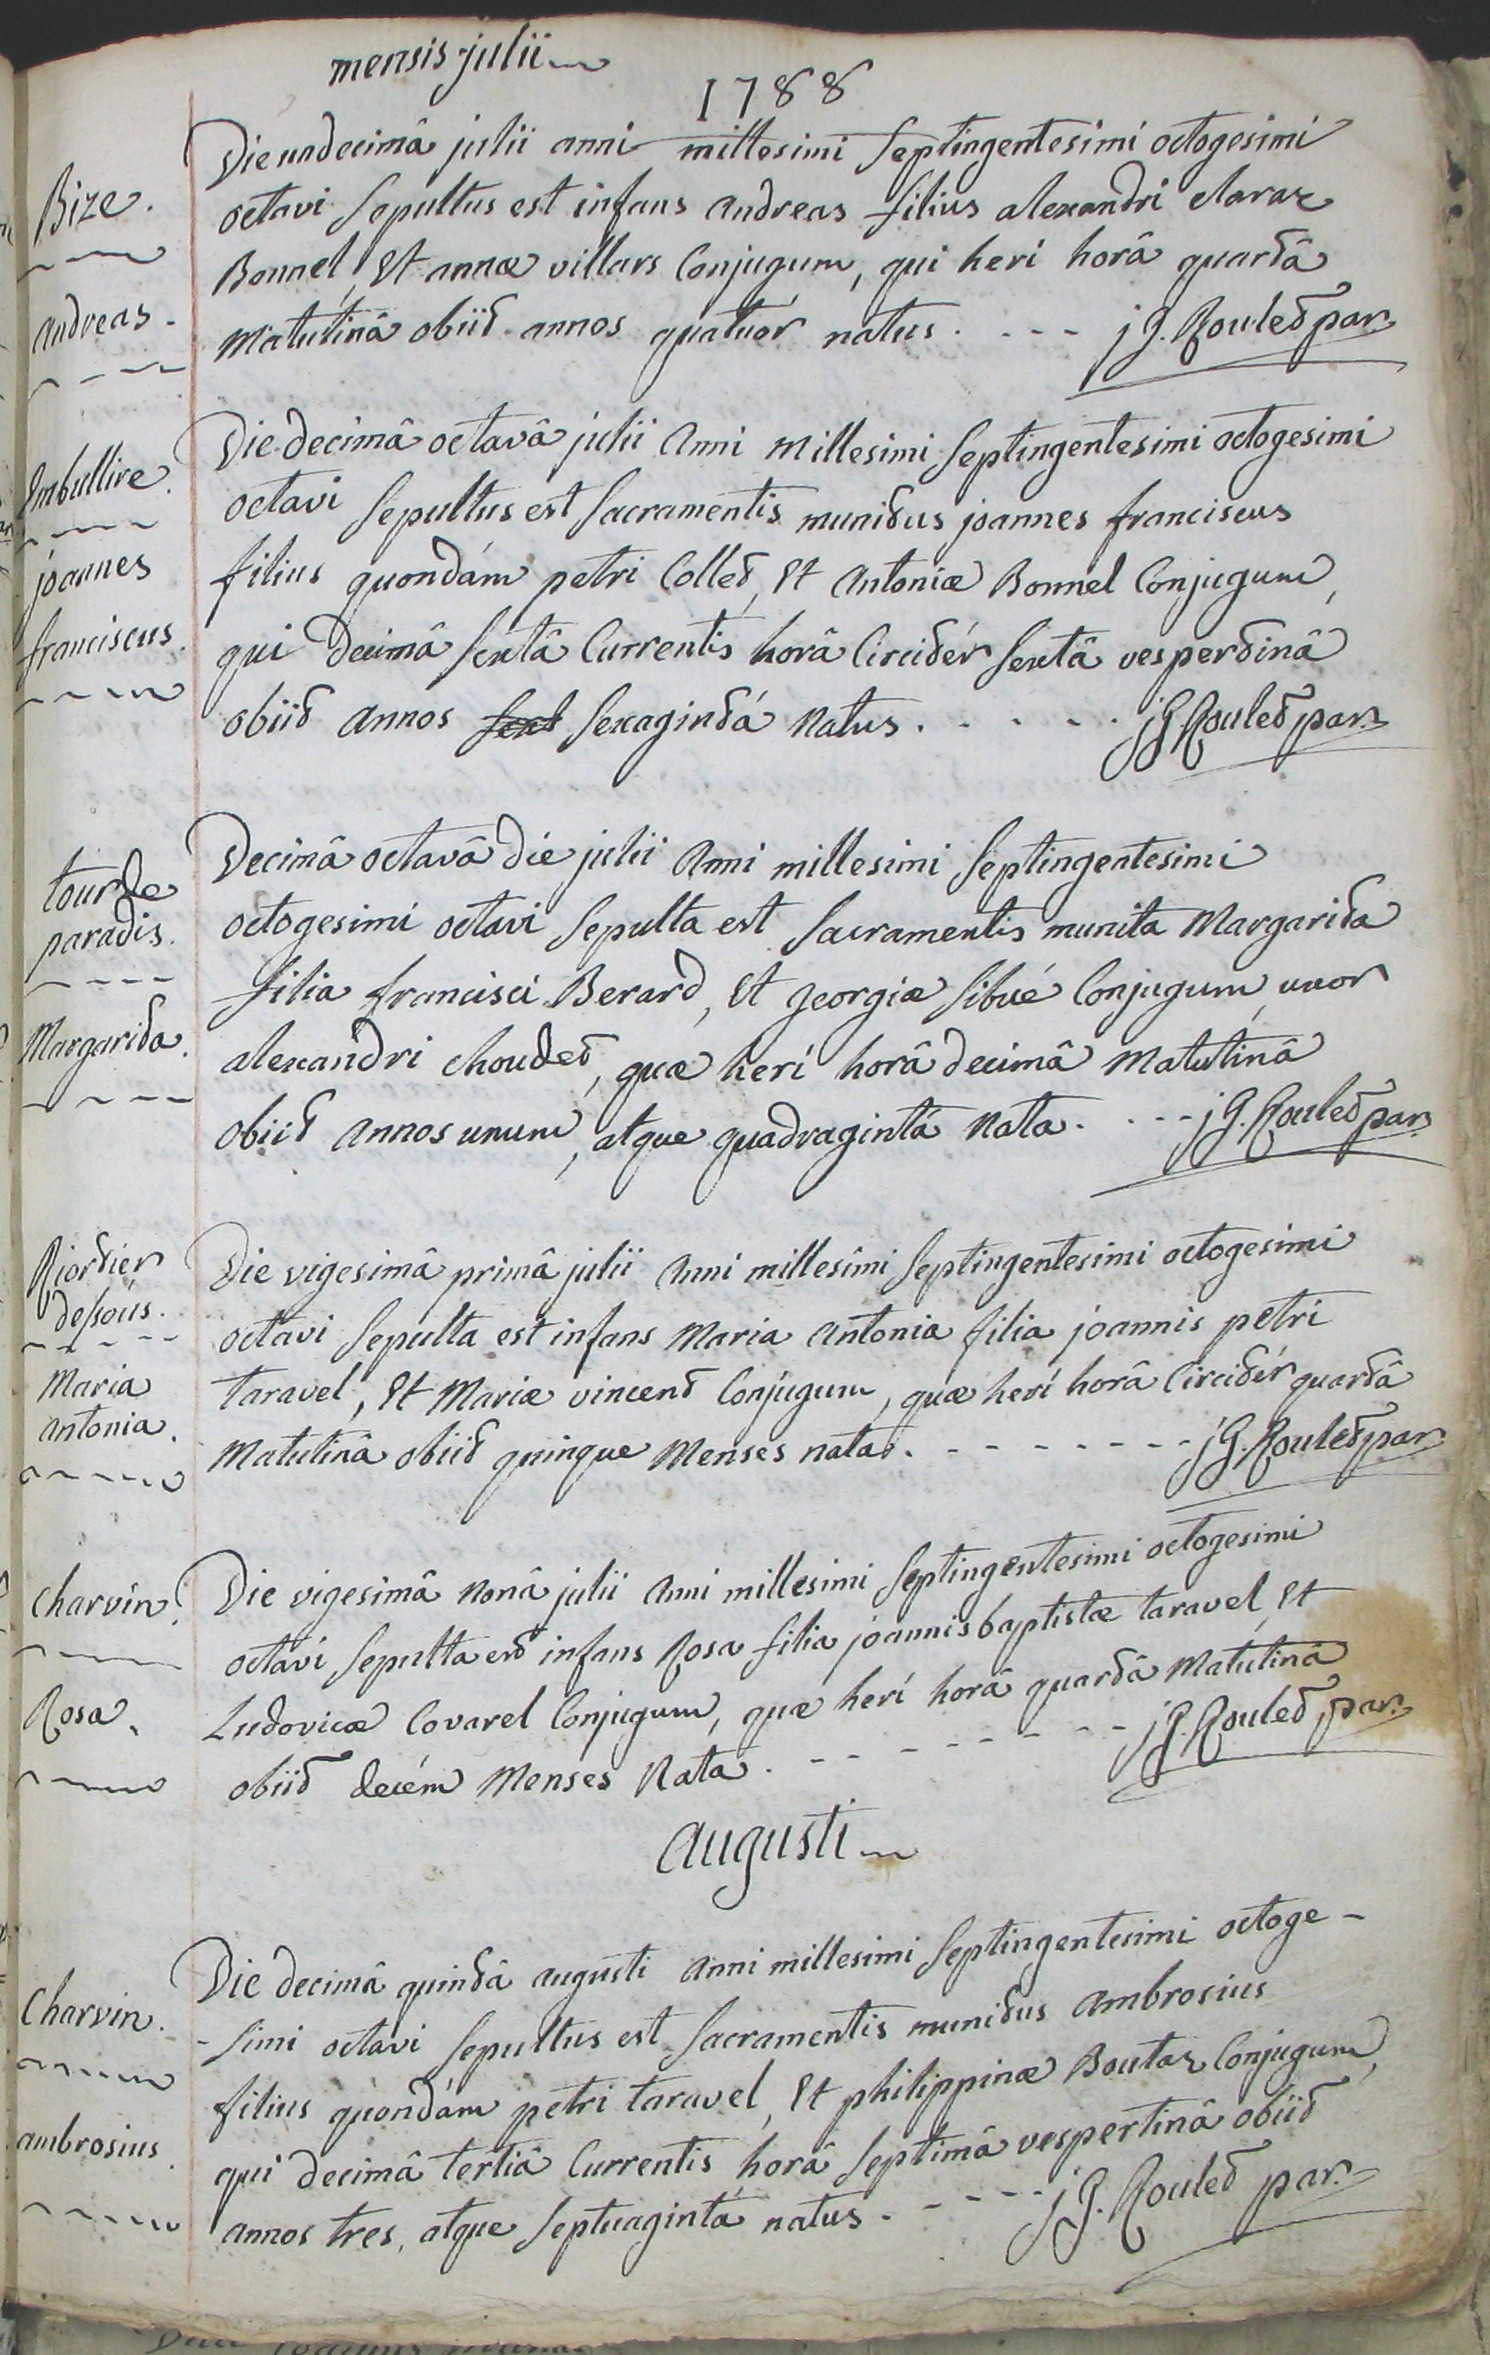 mensis julii
1788
Bize.
Andreas.
Die undecimâ julii anni millesimi septingentesimi octogesimi
octavi sepultus est infans andreas filius alexandri claraz
Bonnel, Et annæ villars Conjugum, qui heri horâ quartâ
matutinâ obiit annos quatuor natus. - - - j G. Roulet par.
Embullire.
joannes
franciscus.
Die decimâ octavâ julii anni millesimi septingentesimi octogesimi
octavi sepultus est sacramentis munitus joannes franciscus
filius quondám petri Collet, Et antoniæ Bonnel Conjugum,
qui decimâ sextâ Currentis horâ Circitér sextâ vespertinâ
obiit annos sexagintá natus. - - - - - j G. Roulet par.
tour de
paradis.
Margarita.
Decimâ octavâ die julii anni millesimi septingentesimi
octogesimi octavi sepulta est sacramentis munita Margarita
filia francisci Berard, Et georgiæ sibué Conjugum, uxor
alexandri choudet, quæ heri horâ decimâ matutinâ
obiit annos unum, atque quadragintá nata. - - - j G. Roulet par.
Riortier
dessous.
Maria
antonia.
Die vigesimâ primâ julii anni millesimi septingentesimi octogesimi
octavi sepulta est infans Maria antonia filia joannis petri
taravel, Et Mariæ vincent Conjugum, quæ heri horâ Circitér quartâ
matutinâ obiit quinque Menses nata. - - - - - - - j G. Roulet par.
Charvin.
Rosa.
Die vigesimâ nonâ julii anni millesimi septingentesimi octogesimi
octavi sepulta est infans Rosa filia joannis baptistæ taravel, Et
Ludovicæ Covarel Conjugum, quæ heri horâ quartâ matutinâ
obiit decém Menses nata. - - - - - - - - j G. Roulet, par.
augusti
Charvin.
ambrosius.
Die decimâ quintâ augusti anni millesimi septingentesimi octoge-
-simi octavi sepultus est sacramentis munitus ambrosius
filius quondám petri taravel, Et philippinæ Boutaz Conjugum,
qui decimâ tertiâ Currentis horâ septimâ vespertinâ obiit
annos tres, atque septuagintá natus. - - - - j G. Roulet par.